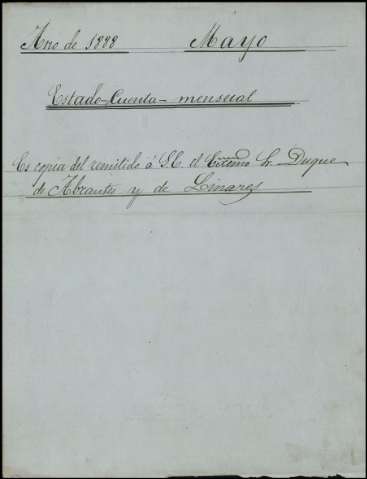 Año de 1888 Mayo
Estado-Cuenta-mensual
Es copia del remitido á S.E. el Exctmo Sr. Duque
de Abrantes y de Linares